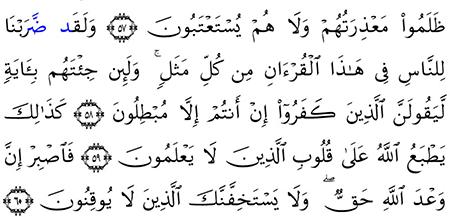 ظَلَمُوا۟ مَعْذِرَتُهُمْ وَلَا هُمْ يُسْتَعْتَبُونَ ﴿٥٧﴾ وَلَقَد ضَّرَبْنَا
لِلنَّاسِ فِى هَـٰذَا ٱلْقُرْءَانِ مِن كُلِّ مَثَلٍۢ ۚ وَلَئِن جِئْتَهُم بِـَٔايَةٍۢ
لَّيَقُولَنَّ ٱلَّذِينَ كَفَرُوٓا۟ إِنْ أَنتُمْ إِلَّا مُبْطِلُونَ ﴿٥٨﴾ كَذَٰلِكَ
يَطْبَعُ ٱللَّهُ عَلَىٰ قُلُوبِ ٱلَّذِينَ لَا يَعْلَمُونَ ﴿٥٩﴾ فَٱصْبِرْ إِنَّ
وَعْدَ ٱللَّهِ حَقٌّۭ ۖ وَلَا يَسْتَخِفَّنَّكَ ٱلَّذِينَ لَا يُوقِنُونَ ﴿٦٠﴾